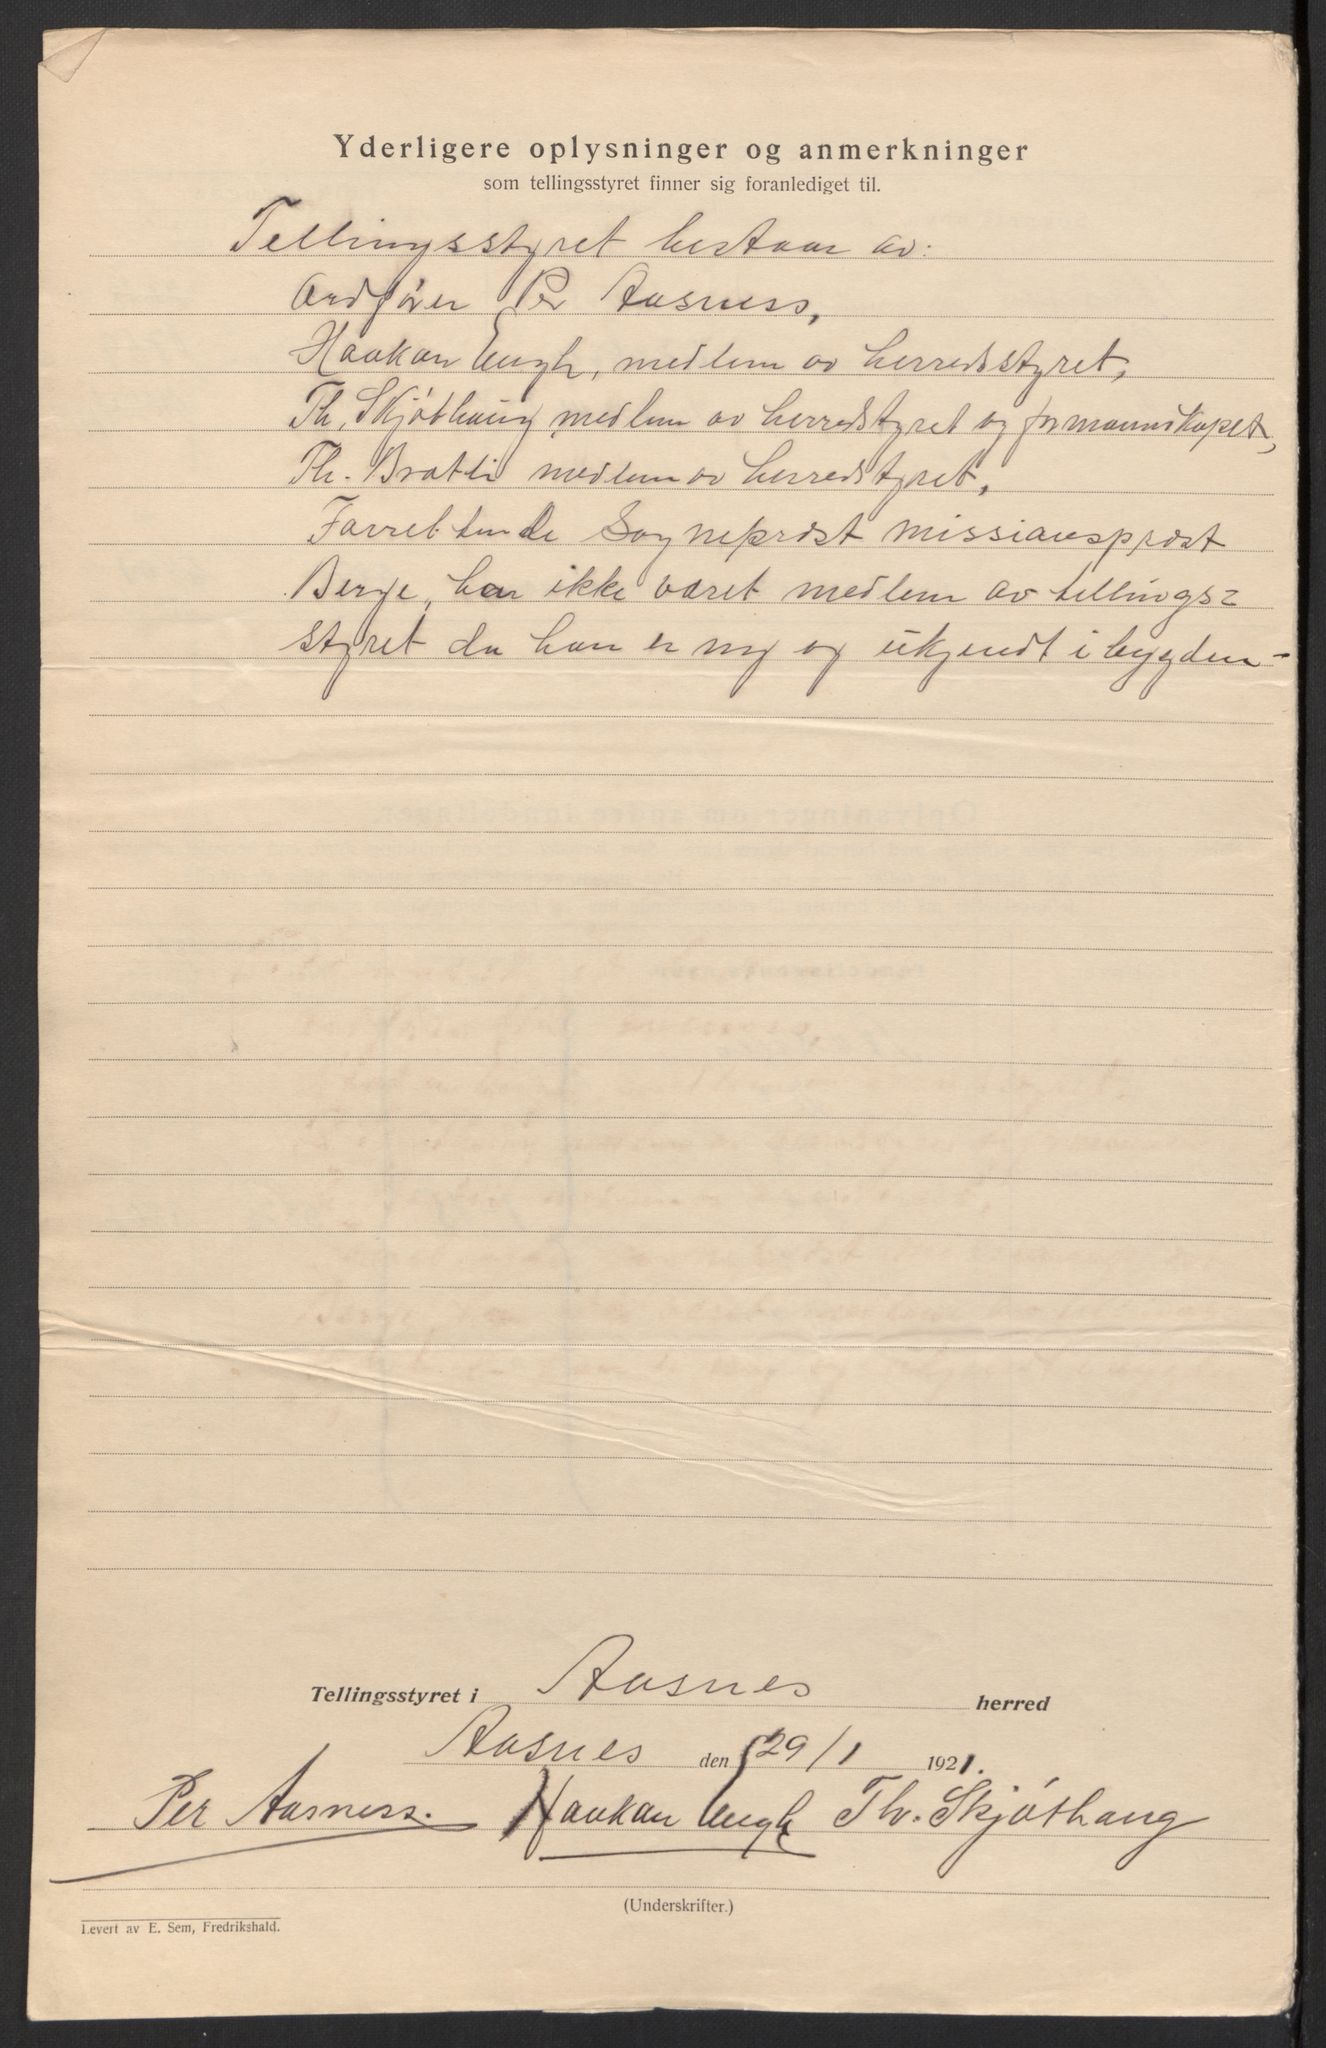 Yderligere oplysninger og anmerkninger
som tellingsstyret finner sig foranlediget til.
Tellingsstyret bestaar av:
Ordfører Per Aasness,
Haakon Engh, medlem av herredsstyret,
Th. Skjøthaug medlem av herredstyret og formannskapet,
Th. Bratli medlem av herredstyret,
Forrettende Sogneprest missionsprest
Berge, har ikke været medlem av tellings=
styret da han er ny og ukjendt i bygden-
Tellingsstyret i Aasnes herred
Aasnes den 29/1 1921.
Per Aasness. Haakon Engh Th. Skjøthaug
(Underskrifter.)
Levert av E. Sem, Fredrikshald.